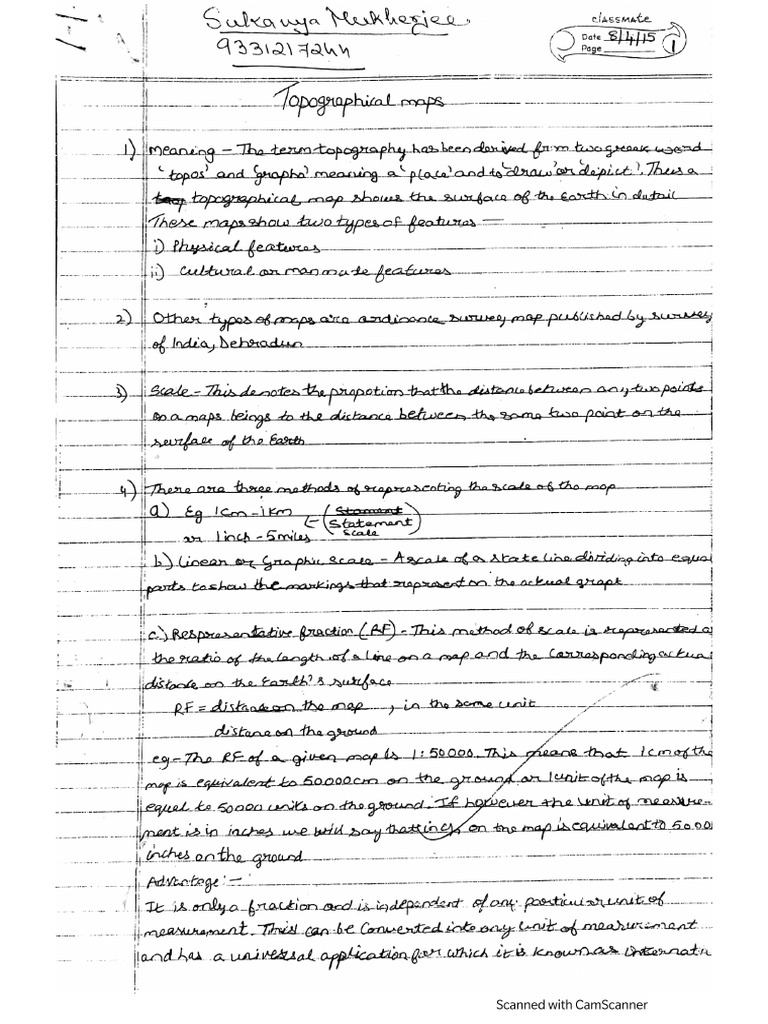 Sukanya Mukherjee
9331217244
classmate
Date 8/4/15
Page 1
Topographical maps
1) Meaning - The term topography has been derived from two greek word
'topos' and 'grapho' meaning a 'place' and to 'draw' or 'depict'. Thus a
topographical map shows the surface of the Earth in detail
These maps show two types of features —
i) Physical features
ii) Cultural or man mate features
2) Other types of maps are ordinance survey map published by survey
of India, Dehradun
3) Scale - This denotes the propotion that the distance between any two points
on a maps beings to the distance between the same two point on the
surface of the Earth
4) There are three methods of representing the scale of the map
a) Eg 1cm - 1km (Stament
Statement
or 1inch - 5miles Scale)
b) Linear or Graphic scale - A scale of a state line dividing into equal
parts to show the markings that represent on the actual grapt
c.) Respresentative fraction (RF) - This method of scale is represented a
the ratio of the length of a line on a map and the corresponding actua
distance on the Earth's surface
RF = distance on the map , in the same unit
distane on the ground
eg - The RF of a given map is 1:50000. This means that 1cm of the
map is equivalent to 50000cm on the ground or 1unit of the map is
equal to 50000 units on the ground. If however the unit of measure-
ment is in inches we will say that 1inch on the map is equivalent to 5000
inches on the ground
Advantage:-
It is only a fraction and is independent of any particular unit of
measurement. This can be converted into any unit of measurement
and has a universal application for which it is known as internatn
Scanned with CamScanner